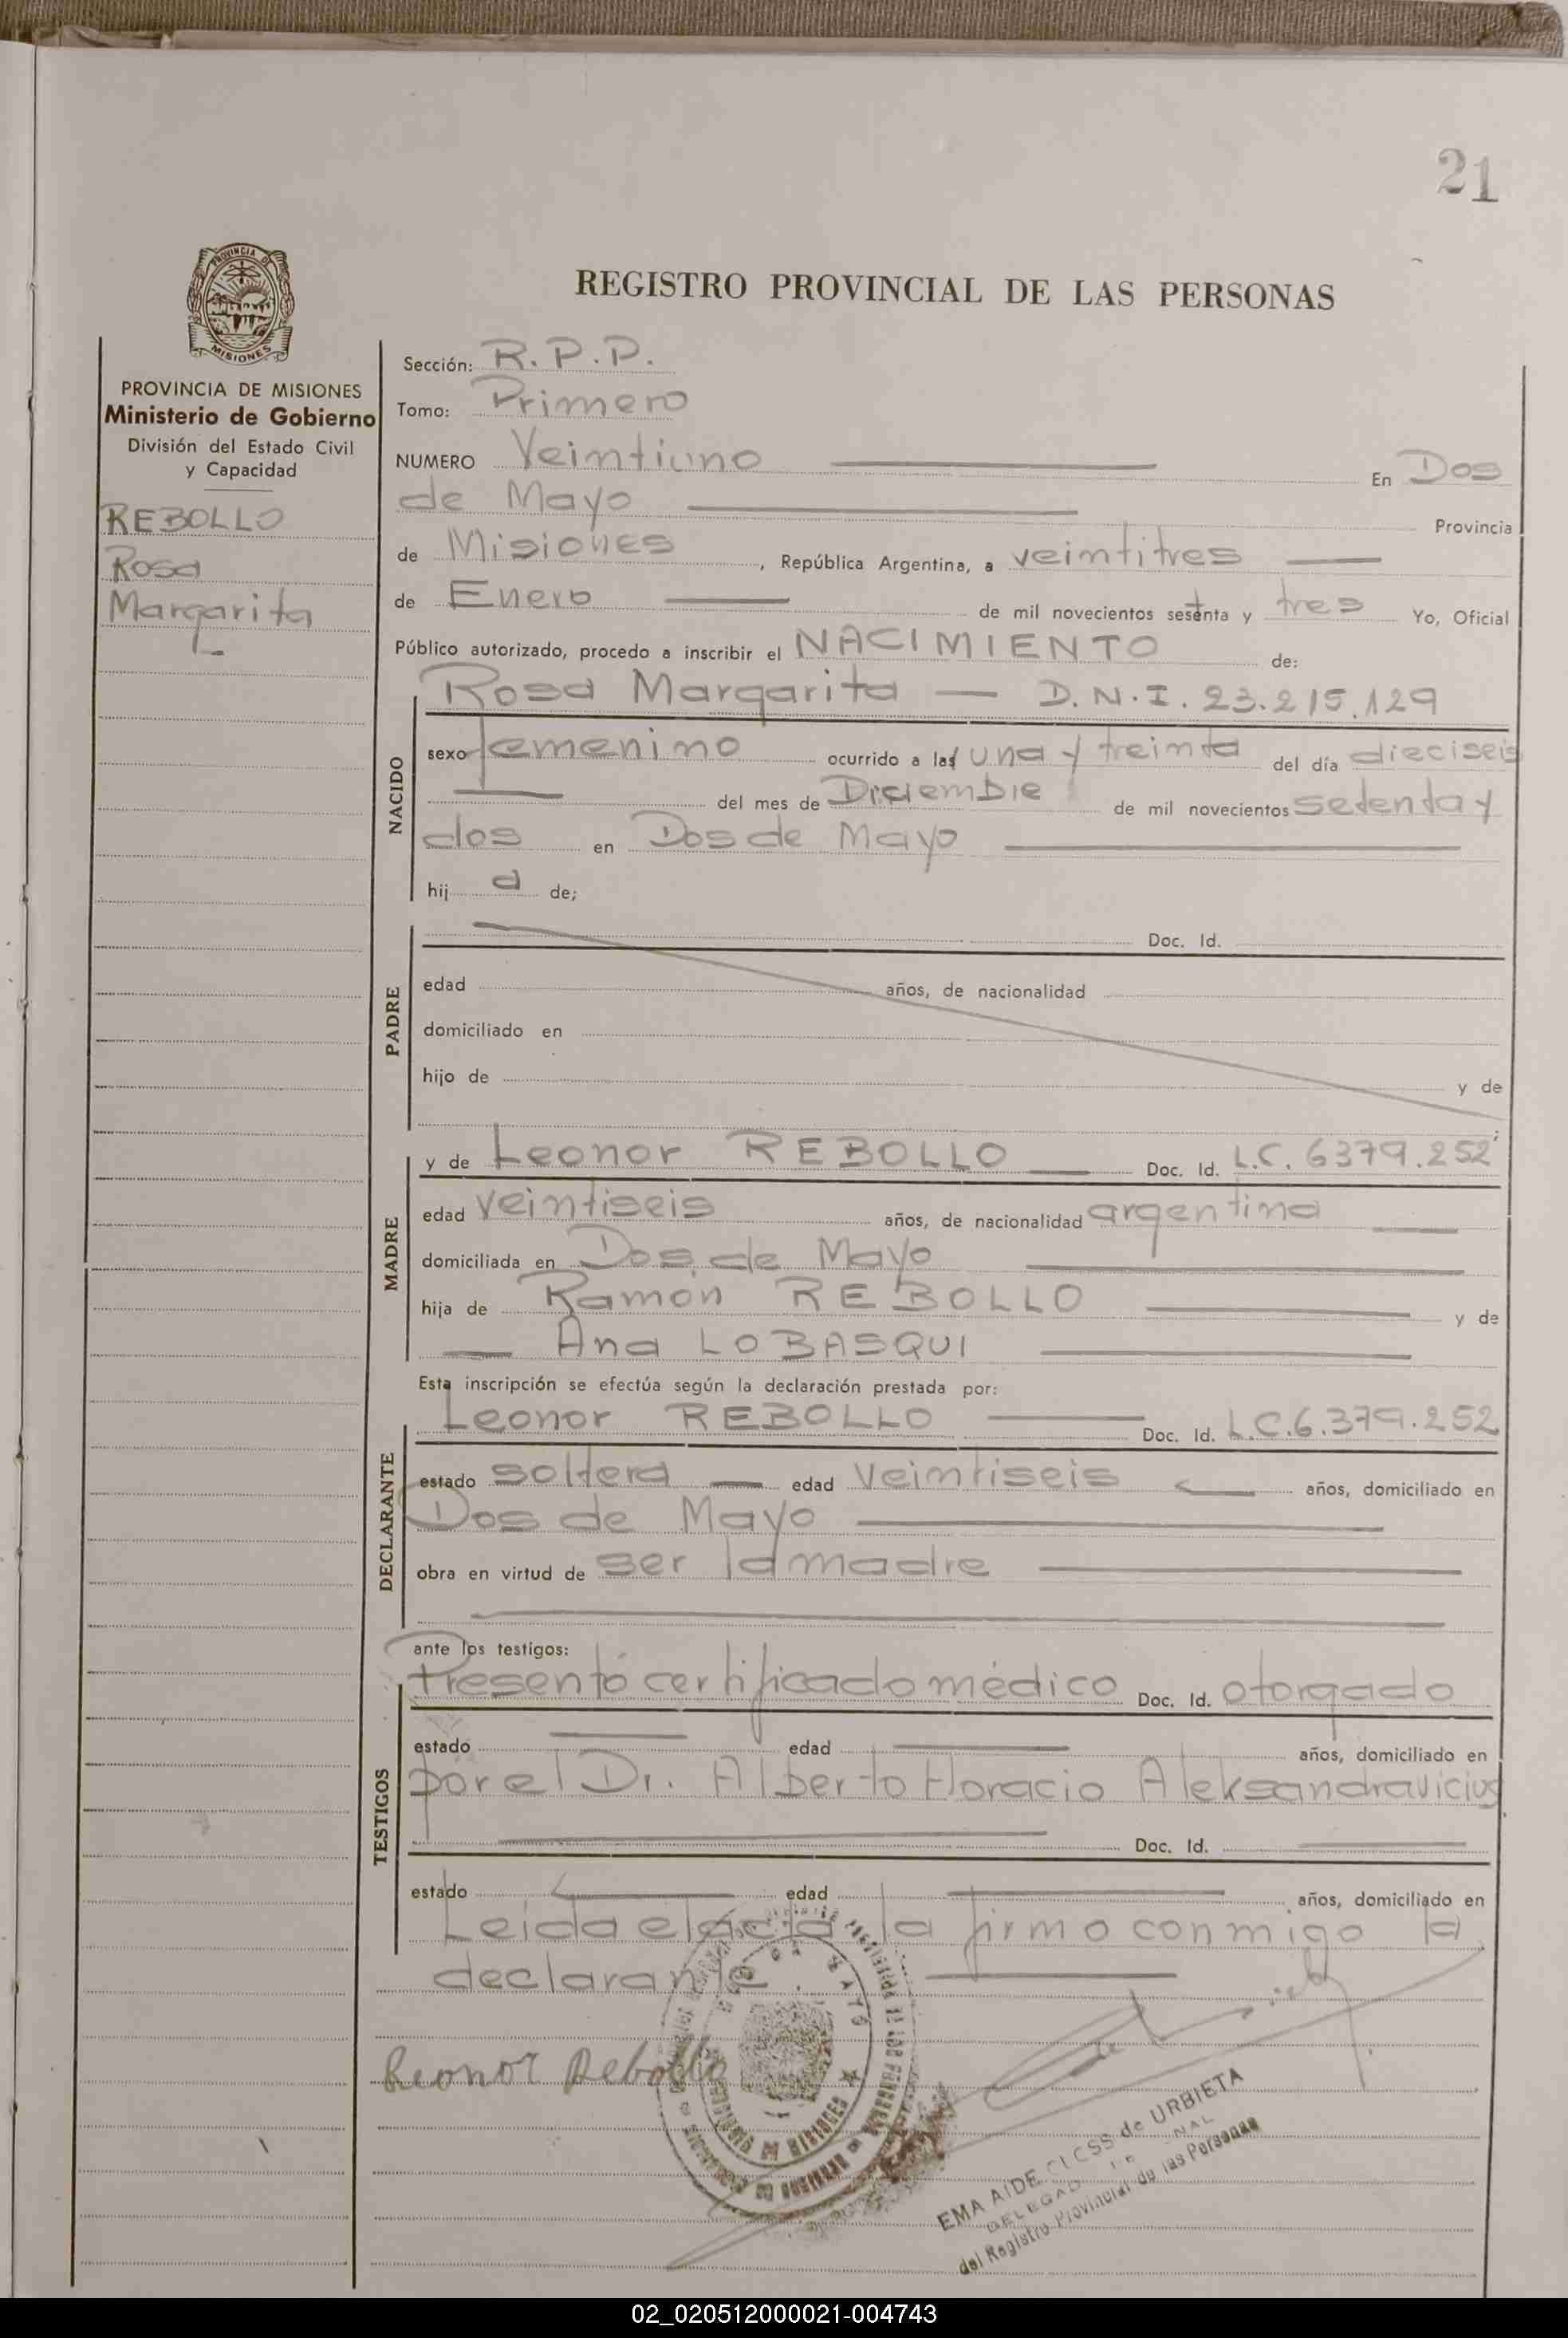 21
PROVINCIA DE
MISIONES
REGISTRO PROVINCIAL DE LAS PERSONAS
PROVINCIA DE MISIONES
Ministerio de Gobierno
División del Estado Civil
y Capacidad
REBOLLO
Rosa
Margarita
Sección: R.P.P.
Tomo: Primero
NUMERO Veintiuno En Dos
de Mayo Provincia
de Misiones, República Argentina, a veintitres
de Enero de mil novecientos setenta y tres Yo, Oficial
Público autorizado, procedo a inscribir el NACIMIENTO de:
NACIDO
Rosa Margarita — D.N.I. 23.215.129
sexo femenino ocurrido a las una y treinta del día dieciseis
del mes de Diciembre de mil novecientos setenta y
dos en Dos de Mayo
hij a de;
PADRE
Doc. Id.
edad años, de nacionalidad
domiciliado en
hijo de y de
MADRE
y de Leonor REBOLLO Doc. Id. L.C. 6379.252
edad veintiseis años, de nacionalidad argentina
domiciliada en Dos de Mayo
hija de Ramón REBOLLO y de
Ana LOBASQUI
Esta inscripción se efectúa según la declaración prestada por:
DECLARANTE
Leonor REBOLLO Doc. Id. L.C.6.379.252
estado soltera edad veintiseis años, domiciliado en
Dos de Mayo
obra en virtud de ser la madre
ante los testigos:
TESTIGOS
Presentó certificado médico Doc. Id. otorgado
estado edad años, domiciliado en
por el Dr. Alberto Horacio Aleksandravicius
Doc. Id.
estado edad años, domiciliado en
Leída el acta la firmo conmigo la
declarante
Leonor Rebollo
EMA AIDE de URBIETA
del Registro Provincial de las Personas
02_020512000021-004743